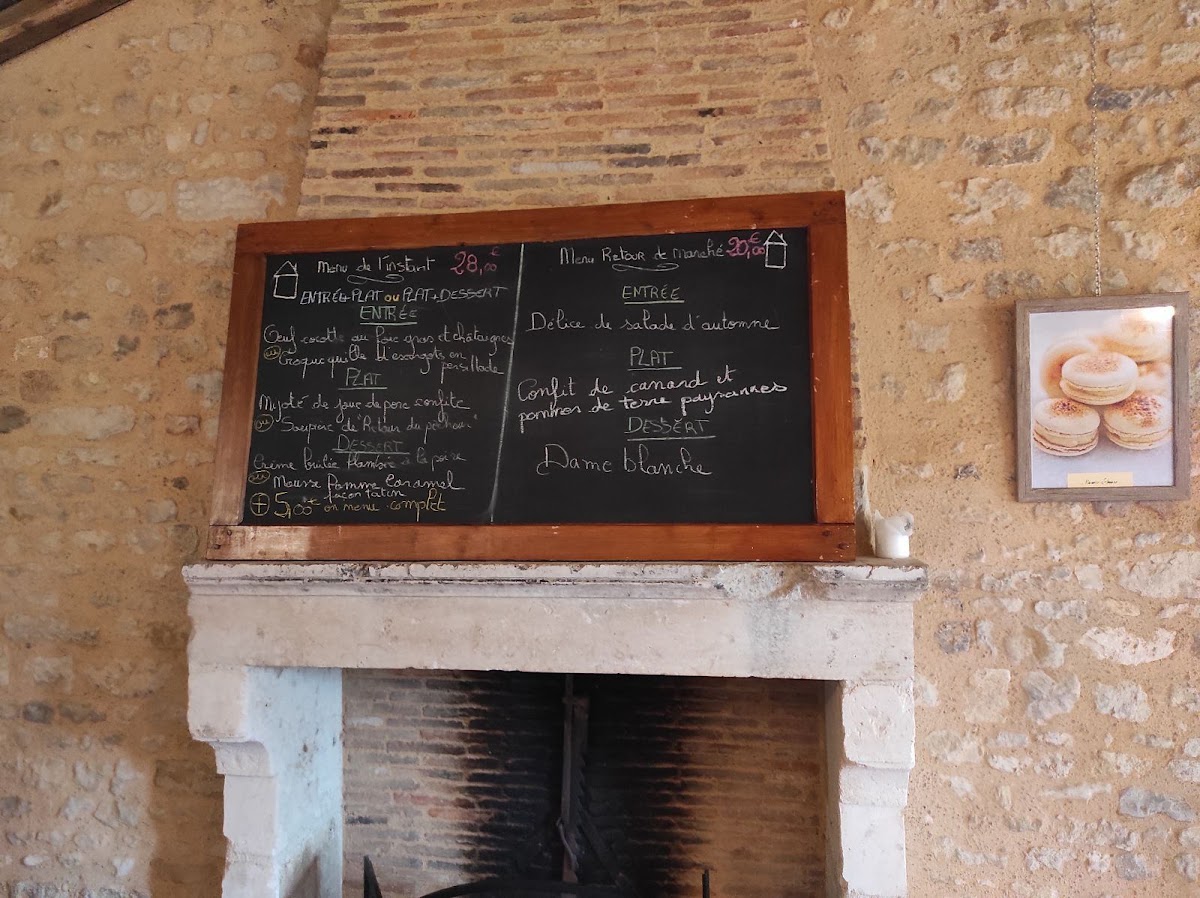 Menu de l'instant 28,00€
ENTRÉE+PLAT ou PLAT+DESSERT
ENTRÉE
Oeuf cocotte au foie gras et châtaignes
ou Croque quille d'escargots en
persillade
PLAT
Mijoté de joue de porc confite
ou Souper de "Retour du pêcheur"
DESSERT
Crème brûlée flambée à la poire
ou Mousse Pomme Caramel
façon tatin
+ 5,00€ en menu complet
Menu Retour de marché 20,00€
ENTRÉE
Délice de salade d'automne
PLAT
Confit de canard et
pommes de terre paysannes
DESSERT
Dame blanche